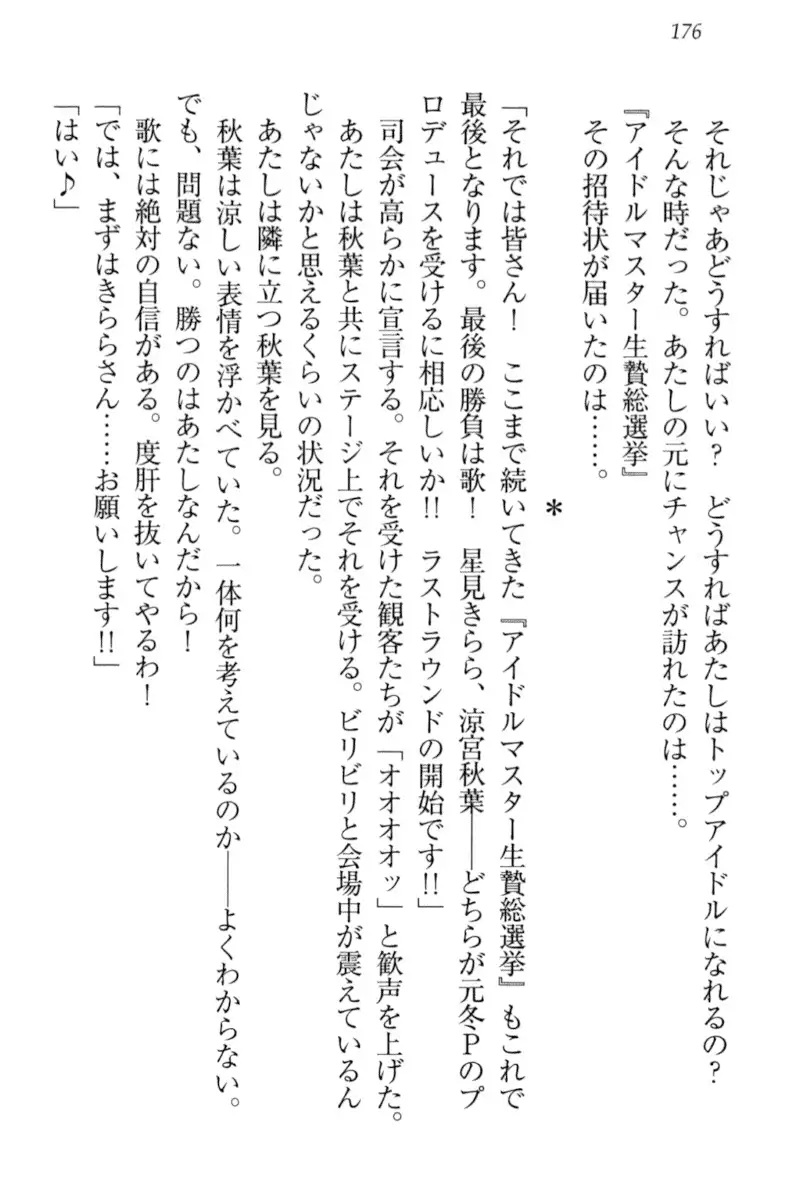 176
それじゃあどうすればいい？　どうすればあたしはトップアイドルになれるの？
そんな時だった。あたしの元にチャンスが訪れたのは……。
『アイドルマスター生贄総選挙』
その招待状が届いたのは……。
＊
「それでは皆さん！　ここまで続いてきた『アイドルマスター生贄総選挙』もこれで
最後となります。最後の勝負は歌！　星見きらら、涼宮秋葉――どちらが元冬Ｐのプ
ロデュースを受けるに相応しいか!!　ラストラウンドの開始です!!」
司会が高らかに宣言する。それを受けた観客たちが「オオオオッ」と歓声を上げた。
あたしは秋葉と共にステージ上でそれを受ける。ビリビリと会場中が震えているん
じゃないかと思えるくらいの状況だった。
あたしは隣に立つ秋葉を見る。
秋葉は涼しい表情を浮かべていた。一体何を考えているのか――よくわからない。
でも、問題ない。勝つのはあたしなんだから！
歌には絶対の自信がある。度肝を抜いてやるわ！
「では、まずはきららさん……お願いします!!」
「はい♪」